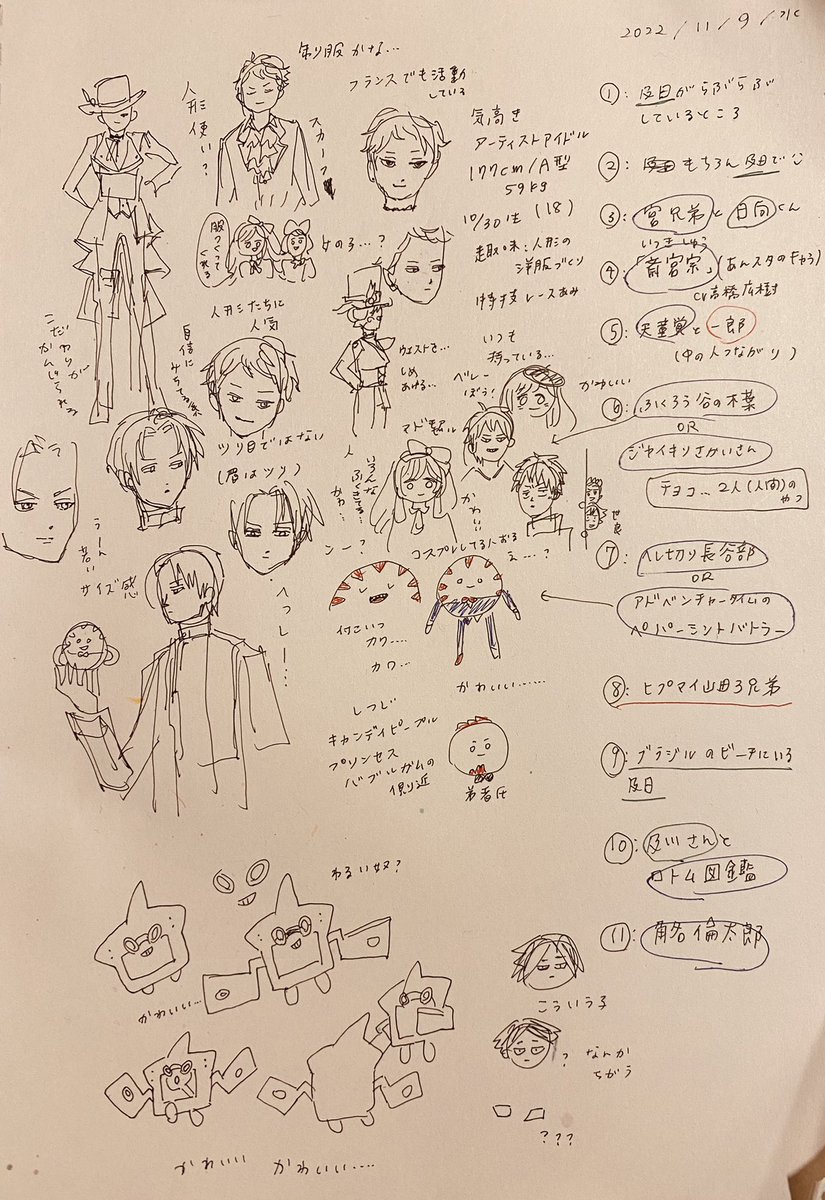 2022/11/9/水
①:及日がらぶらぶ
しているところ
②:及日もちろん及日で
③:宮兄弟と日向くん
いつきしゅう
④「斎宮宗」(あんスタのキャラ)
CV高橋広樹
⑤:天童覚と一郎
(中の人つながり)
⑥:ふくろう谷の木葉
OR
ジャイキリさかいさん
チョコ…2人(人間)の
やつ
⑦:へし切り長谷部
OR
アドベンチャータイムの
ペパーミントバトラー
⑧:ヒプマイ山田3兄弟
⑨:ブラジルのビーチにいる
及日
⑩:及川さんと
ロトム図鑑
⑪:角名倫太郎
制服かな…
フランスでも活動
している
人形使い?
スカーフ
気高き
アーティストアイドル
177cm/A型
59kg
10/30生(18)
趣味:人形の
洋服づくり
特技レースあみ
服つくって
くれる
女の子…?
人形シたちに
人気
こだわりが
かんじられる
自信に
みちてる系
ウエストを…
しめ
あげる…
いつも
持っている…
ベレー
ぼう!
かわいい
マドモアゼル
ツリ目ではない
(眉はツリ)
いろんな
ふくきてる…
かわ…
かわいい
コスプレしてる人おる
ンー?
え…?
うーん
若い
サイズ感
へっしー…
付こいつ
カワ…
カワ…
かわいい……
しつじ
キャンディピープル
プリンセス
バブルガムの
側近
弟者氏
わるい奴?
かわいい…
かわいい
かわいい…
こういう子
?
なんか
ちがう
???